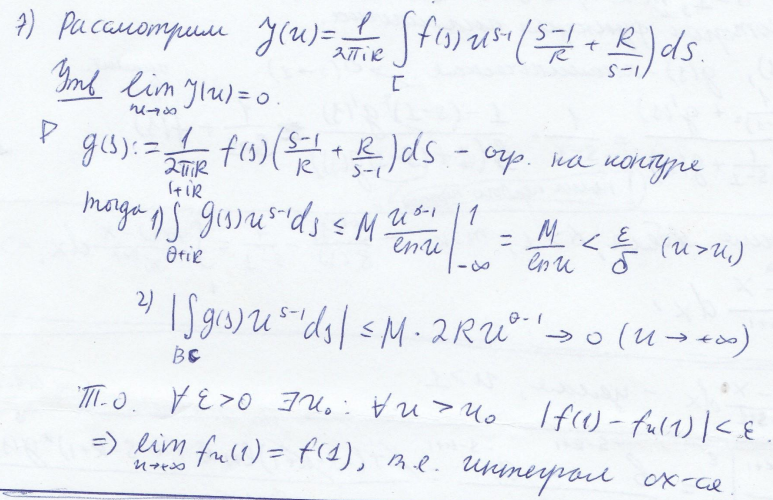 7) Рассмотрим J(u) = 1/(2πiR) ∫_Γ f(s) u^{s-1} ((s-1)/R + R/(s-1)) ds.
Утв lim_{u→∞} J(u) = 0.
▷ g(s) := 1/(2πiR) f(s) ((s-1)/R + R/(s-1)) ds – огр. на контуре
тогда 1) ∫_{θ+iR}^{1+iR} g(s) u^{s-1} ds ≤ M u^{σ-1}/ln u |_{-∞}^{1} = M/ln u < ε/5 (u > u₁)
2) |∫_{BC} g(s) u^{s-1} ds| ≤ M · 2R u^{θ-1} → 0 (u → +∞)
Т.о. ∀ε>0 ∃u₀: ∀u > u₀ |f(1) - fᵤ(1)| < ε
⇒ lim_{u→+∞} fᵤ(1) = f(1), т.е. интеграл сх-ся.